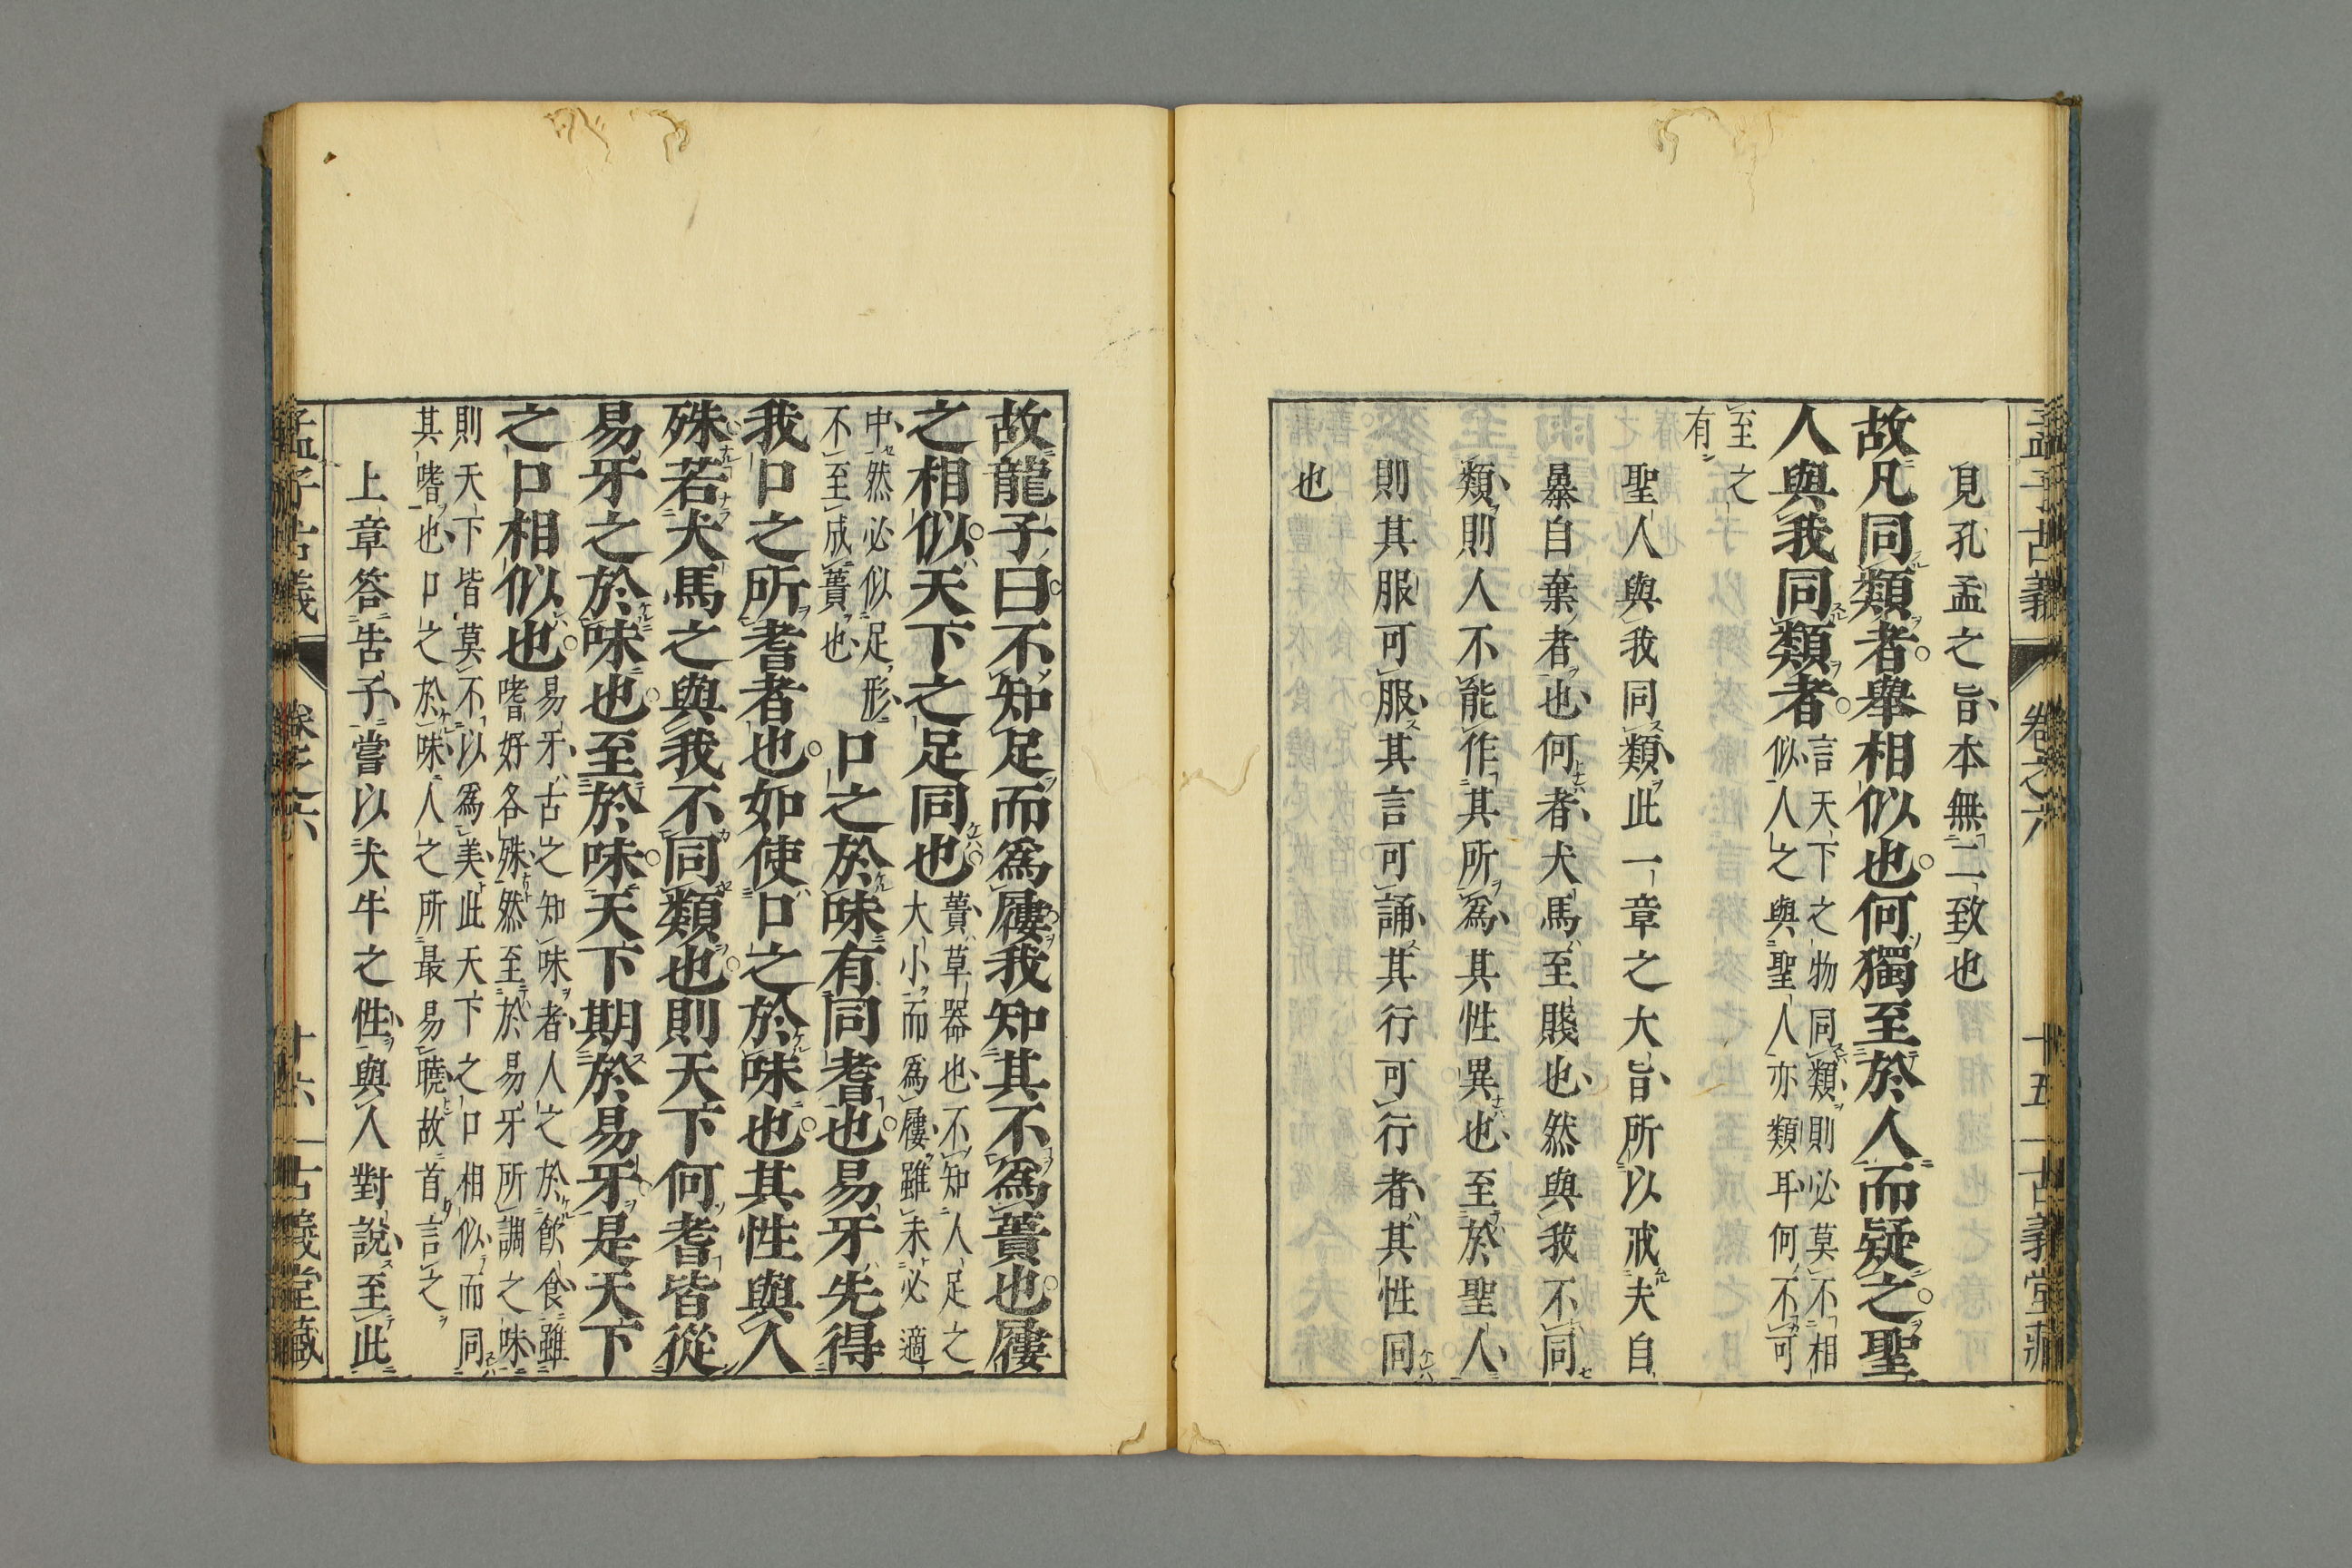 孟子古義　卷之六　十五　古義堂藏
見孔孟之旨本無二致也
故凡同類者舉相似也何獨至於人而疑之聖
人與我同類者
言天下之物同類則必莫不相
似人之與聖人亦類耳何不可
至之
有
聖人與我同類此一章之大旨所以戒夫自
暴自棄者也何者犬馬至賤也然與我不同
類則人不能作其所爲其性異也至於聖人
則其服可服其言可誦其行可行者其性同
也
故龍子曰不知足而爲屨我知其不爲蕢也屨
之相似天下之足同也
蕢草器也不知人足之
大小而爲屨雖未必適
中然必似足形
不至成蕢也
口之於味有同耆也易牙先得
我口之所耆者也如使口之於味也其性與人
殊若犬馬之與我不同類也則天下何耆皆從
易牙之於味也至於味天下期於易牙是天下
之口相似也
易牙古之知味者人之於飲食雖
嗜好各殊然至於易牙所調之味
則天下皆莫不以爲美此天下之口相似而同
其嗜也口之於味人之所最易曉故首言之
上章答告子嘗以犬牛之性與人對說至此
孟子古義　卷之六　十六　古義堂藏